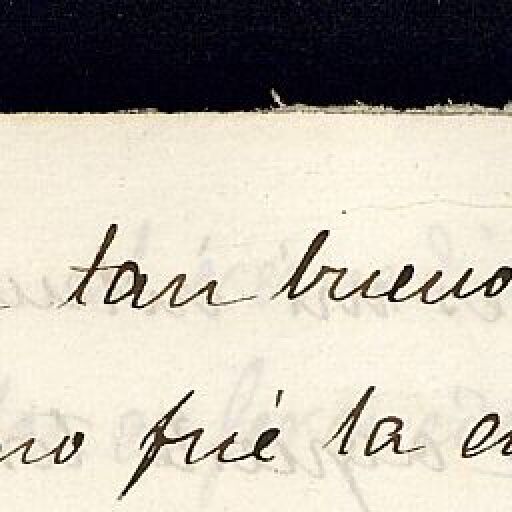 tan bueno
no fué la